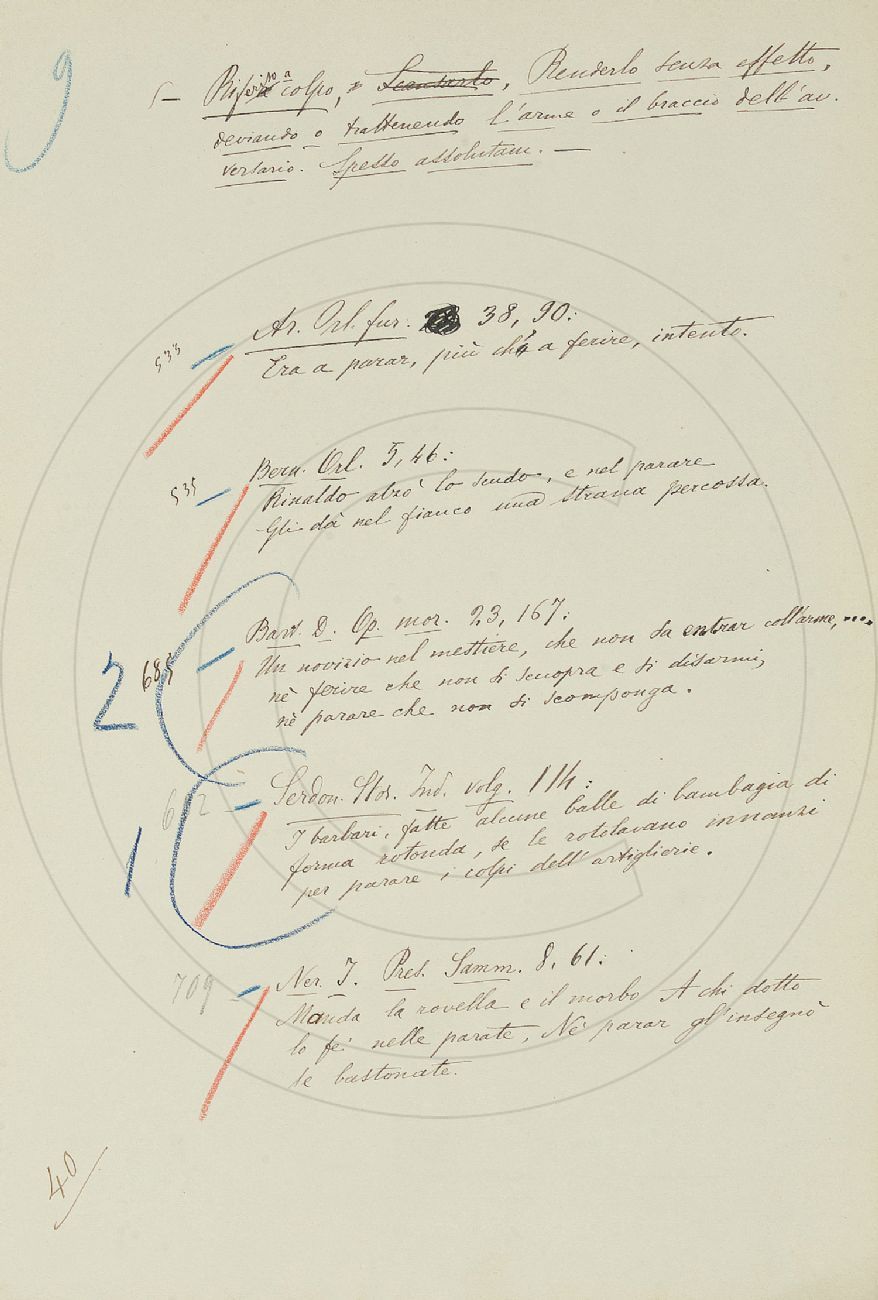 9
5 — Riferito a colpo, Scansarlo, Renderlo senza effetto,
deviando o trattenendo l'arme o il braccio dell'av-
versario. Spesso assolutam. —
Ar. Orl. fur. 38, 90:
533 — Era a parar, più ch'a ferire, intento.
Bern. Orl. 5, 46:
535 — Rinaldo alzò lo scudo, e nel parare
Gli dà nel fianco una strana percossa.
Bart. D. Op. mor. 23, 167:
2 685 — Un novizio nel mestiere, che non sa entrar coll'arme,....
nè ferire che non si scuopra e si disarmi,
nè parare che non si scomponga.
Serdon. Stor. Ind. volg. 114:
1 612 — I barbari, fatte alcune balle di bambagia di
forma rotonda, se le rotolavano innanzi
per parare i colpi dell'artiglierie.
Ner. I. Pres. Samm. 8, 61:
709 — Manda la rovella e il morbo A chi dotto
lo fe' nelle parate, Nè parar gl'insegnò
le bastonate.
40